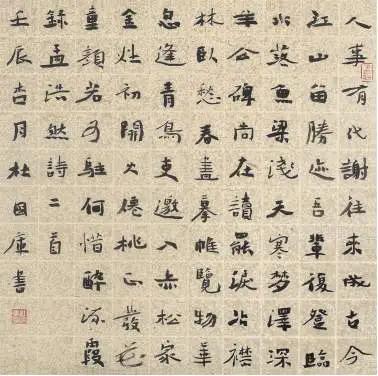 人事有代謝往來成古今
江山留勝迹吾輩復登臨
水落魚梁淺天寒夢澤深
羊公碑尚在讀罷淚沾襟
林臥愁春盡搴帷覽物華
忽逢青鳥使邀入赤松家
金灶初開火僊桃正發花
童顏若可駐何惜醉流霞
錄孟浩然詩二首
壬辰杏月杜国庫書